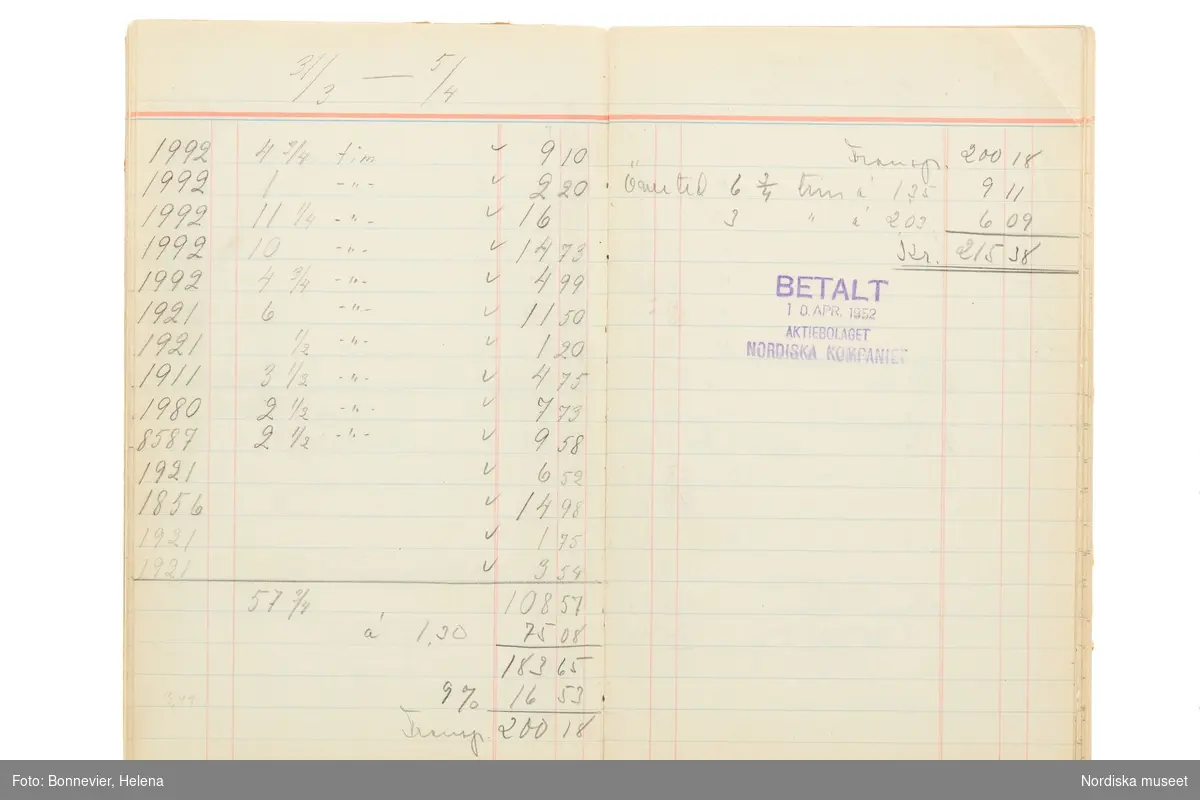 31/3 — 5/4
1992 4 3/4 tim ✓ 9 10
1992 1 -"- ✓ 2 20
1992 11 1/4 -"- ✓ 16
1992 10 -"- ✓ 14 73
1992 4 3/4 -"- ✓ 4 99
1921 6 -"- ✓ 11 50
1921 1/2 -"- ✓ 1 20
1911 3 1/2 -"- ✓ 4 75
1980 2 1/2 -"- ✓ 7 73
8587 2 1/2 -"- ✓ 9 58
1921 ✓ 6 52
1856 ✓ 14 98
1921 ✓ 1 75
1921 ✓ 3 54
57 3/4 108 57
á 1,30 75 08
183 65
9 % 16 53
Transp. 200 18
Transp. 200 18
6 3/4 tim á 1,35 9 11
3 " á 2 03 6 09
Kr. 215 38
BETALT
10. APR. 1952
AKTIEBOLAGET
NORDISKA KOMPANIET
Foto: Bonnevier, Helena
Nordiska museet